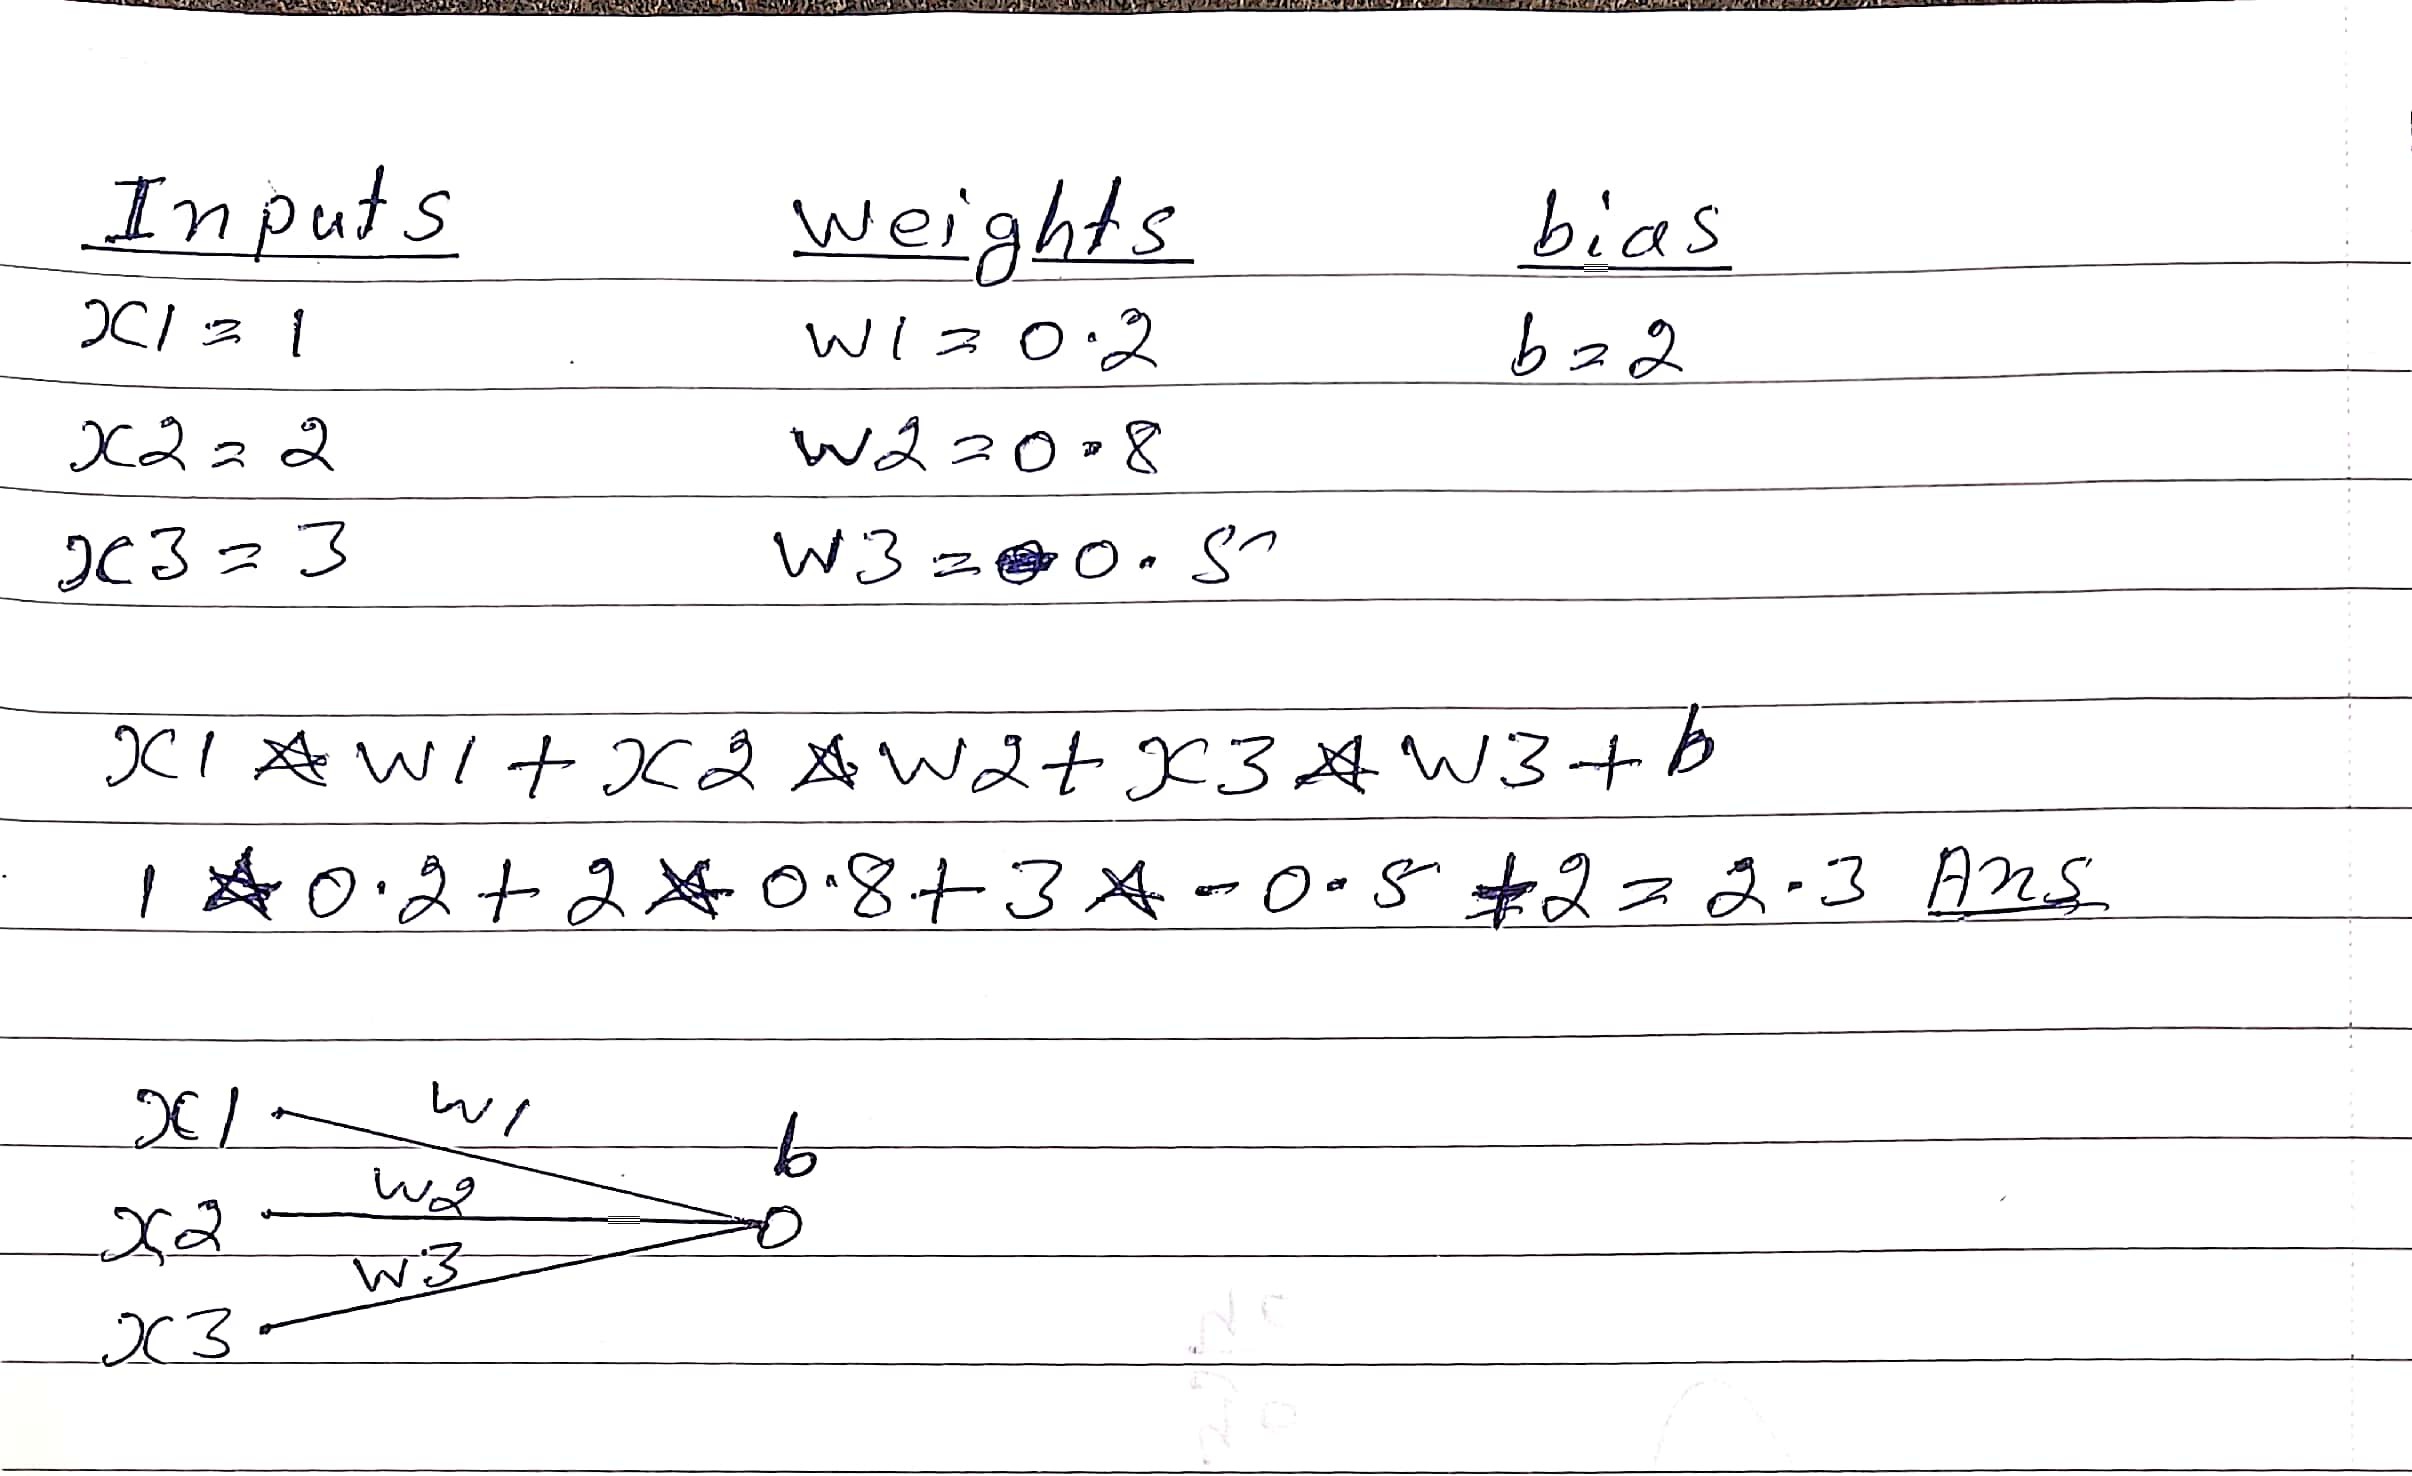 Inputs weights bias
x1 = 1 w1 = 0.2 b = 2
x2 = 2 w2 = 0.8
x3 = 3 w3 = 0.5
x1 * w1 + x2 * w2 + x3 * w3 + b
1 * 0.2 + 2 * 0.8 + 3 * -0.5 + 2 = 2.3 Ans
x1 w1
b
w2
x2
w3
x3